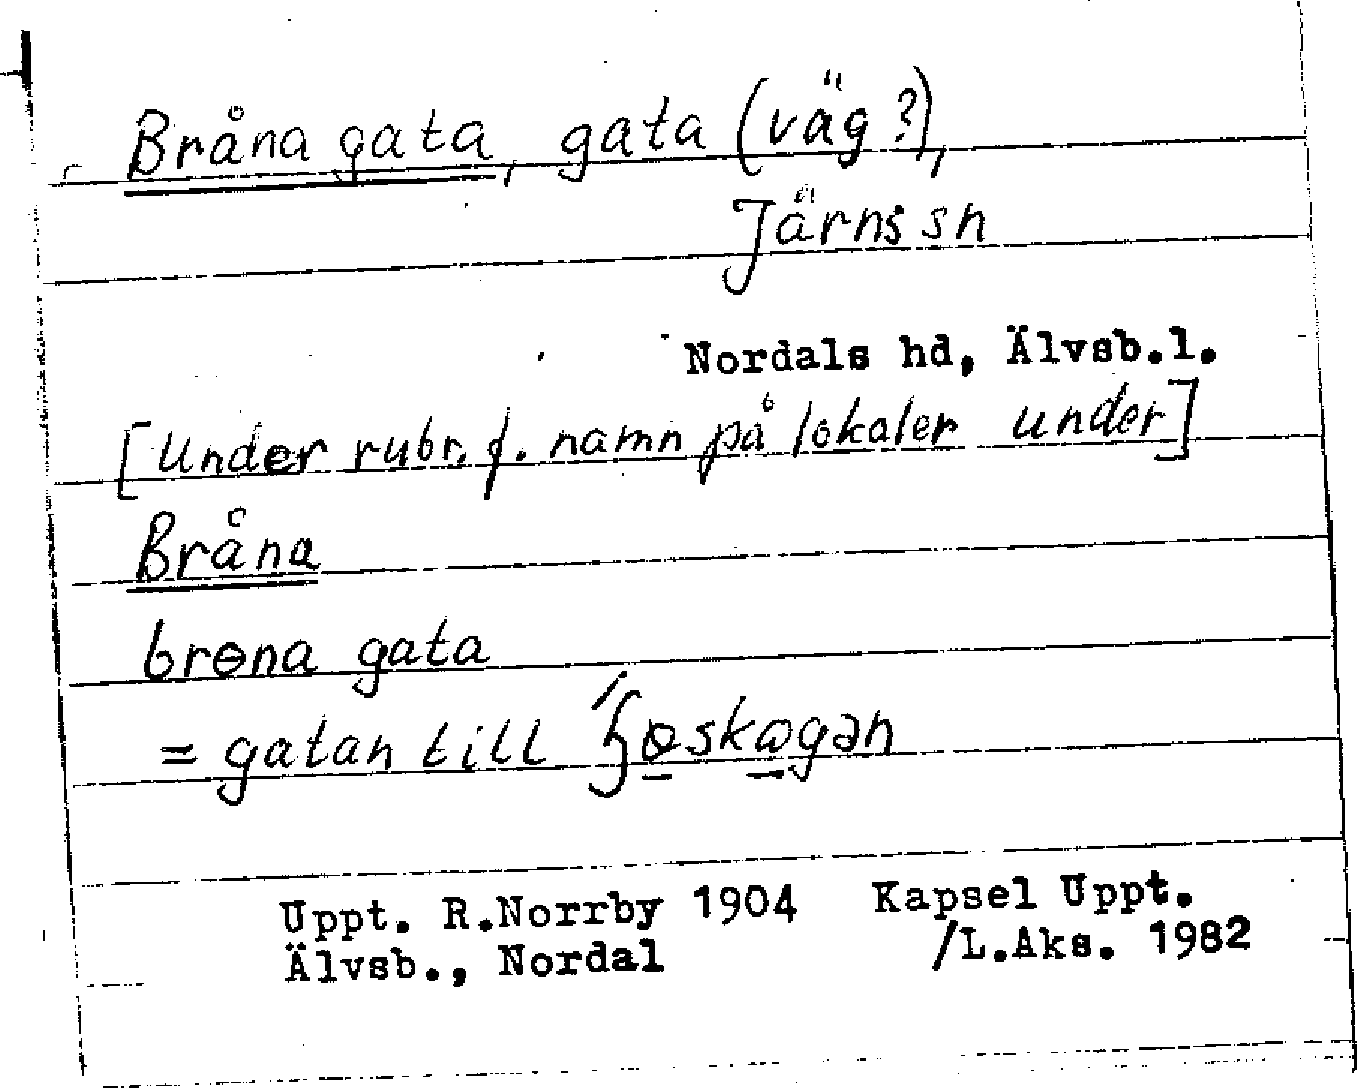 Bråna gata, gata (väg?),
Järns sn
Nordals hd, Älvsb.l.
[Under rubr. f. namn på lokaler under]
Bråna
brɵna gata
= gatan till
Uppt. R.Norrby 1904 Kapsel Uppt.
Älvsb., Nordal /L.Aks. 1982